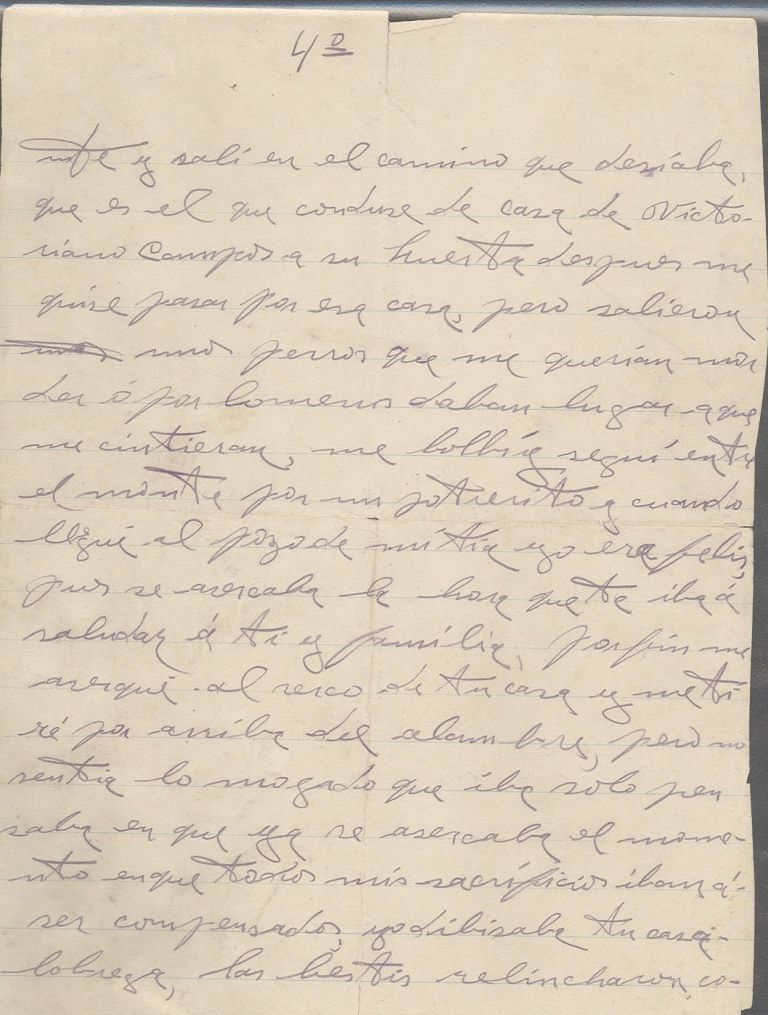 4º
nte y salí en el camino que desiaba,
que es el que conduse de casa de Victo-
riano Campos a su huerta despues me
quise pasar por esa casa, pero salieron
unos perros que me querían mor
der ó por lomenos daban lugar a que
me cintieran, me bolbí y seguí entre
el monte por un potrerito y cuando
llegué al pozo de mi tia yo era felis,
pues se asercaba la hora que te iba á
saludar á ti y família, por fin me
aserqué al serco de tu casa y me ti
ré por arriba del alambre, pero no
sentia lo mogado que iba sólo pen
saba en que ya se asercaba el mome-
nto en que todos mis sacrificios iban á-
ser compensados, yo dibisaba tu casa-
lobrega, las bestis relincharon, co-